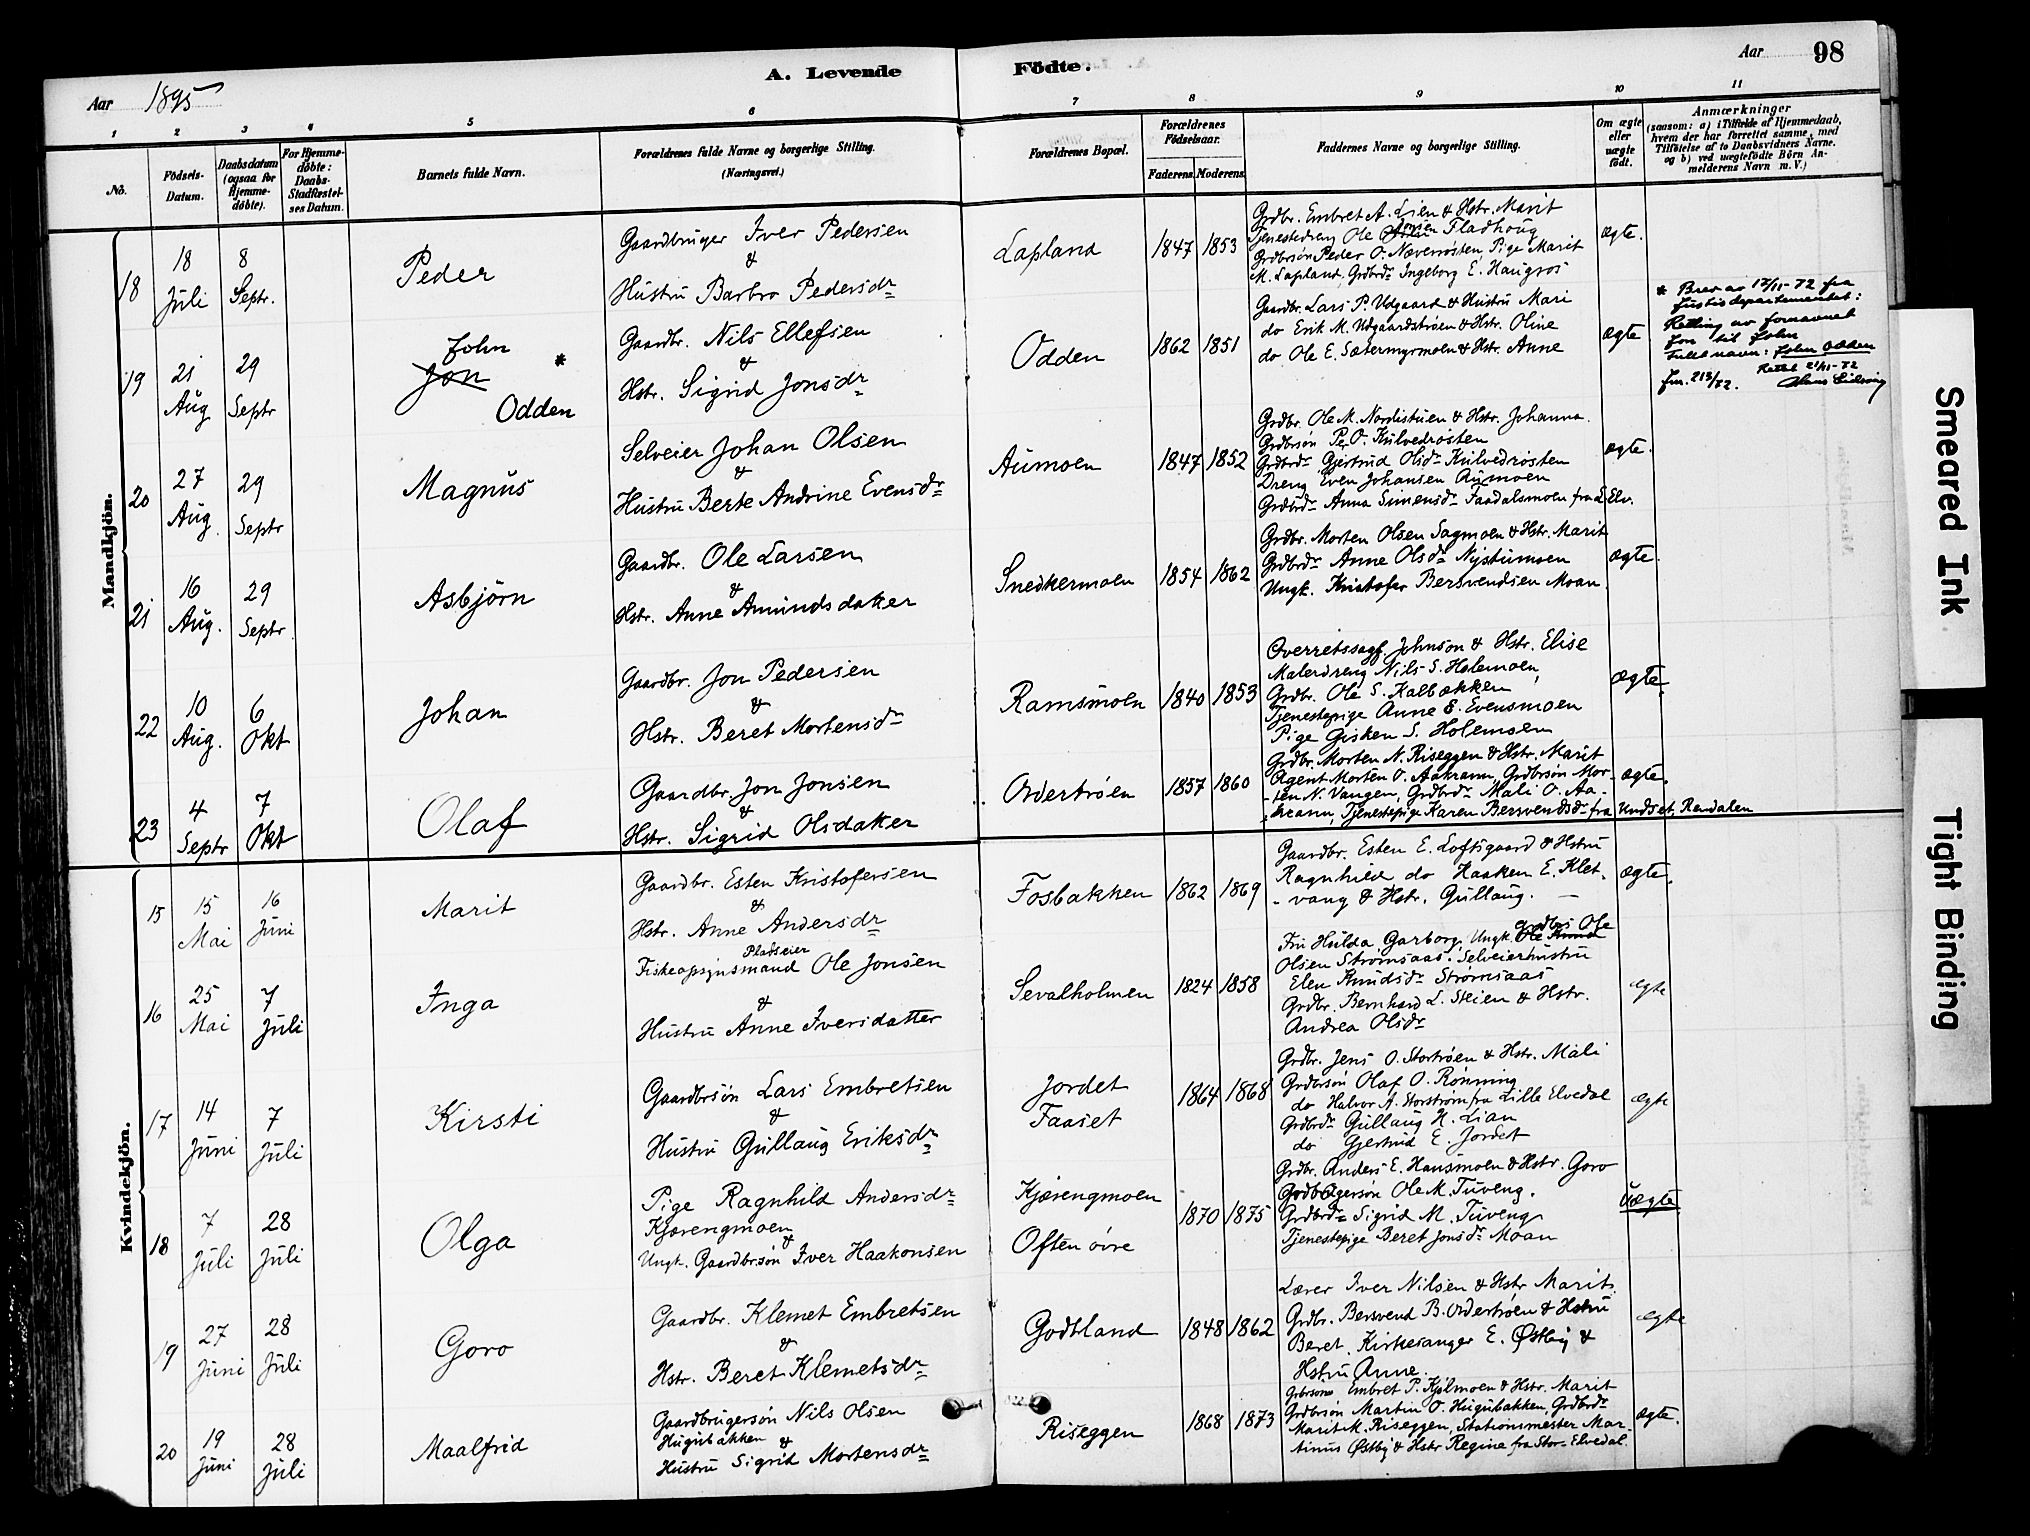 A. Levende Födte.
Aar 1895
Aar 98
1 2 3 4 5 6 7 8 9 10 11
No.
Födsels-Datum.
Daabsdatum (ogsaa for Hjemme-döbte).
For Hjemme-döbte: Daabs-Stadfæstel-ses Datum.
Barnets fulde Navn.
Forældrenes fulde Navne og borgerlige Stilling.
(Næringsvei.)
Forældrenes Bopæl.
Forældrenes Födselsaar.
Faderens. Moderens.
Faddernes Navne og borgerlige Stilling.
Om ægte eller uægte födt.
Anmærkninger
(saasom: a) i Tilfælde af Hjemmedaab, hvem der har forrettet samme, med Tilföielse af to Daabsvidners Navne. og b) ved uægtefödte Börn An-melderens Navn m. V.)
Mandkjön.
18
18 Juli
8 Septr.
Peder
Gaardbruger Iver Pedersen
&
Hustru Barbro Pedersdr
Lapland
1847 1853
Grdbr. Embret A. Lien & Hstr. Marit
Tjenestedreng Ole Fladhoug
Grdbrsön Peder O. Næverrösten, Pige Marit
M. Lapland, Grdbrdr Ingeborg E. Haugros
ægte.
19
21 Aug
29 Septr
John
Jon *
Odden
Gaardbr. Nils Ellefsen
&
Hstr. Sigrid Jonsdr
Odden
1862 1851
Gaardbr. Lars P. Udgaard & Hustru Mari
do Erik M. Udgaardströen & Hstr. Oline
do Ole E. Sætermyrmoen & Hstr. Anne
ægte
* Brev av 17/11-72 fra
Justisdepartementet:
Retting av fornavnet
Jon til John
Fullt navn: John Odden
Rettet 21/11-72
Jnr. 213/72.
20
27 Aug.
29 Septr
Magnus
Selveier Johan Olsen
&
Hustru Berte Andrine Evensdr
Aumoen
1847 1852
Grdbr. Ole M. Nordistuen & Hstr. Johanna.
Grdbrsön Pe O. Kulvedrösten
Grdbrdr Gjertrud Olsdr Kulvedrösten
Dreng Even Johansen Aumoen
Grdbrdr Anna Simensdr Faadalsmoen fra L. Elv.
ægte.
21
16 Aug.
29 Septr.
Asbjörn
Gaardbr. Ole Larsen
&
Hstr. Anne Amundsdaker
Snedkermoen
1854 1862
Grdbr. Morten Olsen Sagmoen & Hstr. Marit
Grdbrdr Anne Olsdr Nystumoen
Ungk. Kristofer Bersvendsen Moan.
ægte.
22
10 Aug.
6 Okt
Johan
Gaardbr. Jon Pedersen
&
Hstr. Beret Mortensdr
Ramsmoen
1840 1853
Overretssagf. Johnson & Hstr. Elise
Malerdreng Nils S. Holemoen,
Grdbr. Ole S. Kalbækken
Tjenestepige Anne E. Evensmoen
Pige Gisken S. Holemoen
ægte.
23
4 Septr
7 Okt
Olaf
Gaardbr. Jon Jonsen
&
Hstr. Sigrid Olsdaker
Ordertröen
1857 1860
Grdbr. Morten N. Riseggen & Hstr. Marit
Agent Morten O. Aakrann, Grdbrsön Mor-
ten N. Vangen, Grdbrdr Mali O. Aa-
kreann, Tjenestepige Karen Bersvendsdr fra Undset, Rendalen
ægte.
Kvindekjön.
15
15 Mai
16 Juni
Marit
Gaardbr. Esten Kristofersen
&
Hstr. Anne Andersdr
Fosbakken
1862 1869
Gaardbr. Esten E. Loftsgaard & Hstru
Ragnhild do Haaken E. Klet-
vang & Hstr. Gullaug.
ægte.
16
25 Mai
7 Juli
Inga
Pladseier
Fiskeopsynsmand Ole Jonsen
&
Hustru Anne Iversdatter
Sevalholmen
1824 1858
Fru Hulda Garborg, Ungk. grdbrs Ole
Olsen Strömsaas. Selveierhustru
Elen Knudsdr Strömsaas
Grdbr. Bernhard L. Steien & Hstr.
Andrea Olsdr
egte
17
14 Juni
7 Juli
Kirsti
Gaardbrsön Lars Embretsen
&
Hustru Gullaug Eriksdr
Jordet
Faaset
1864 1868
Grdbr. Jens O. Stortröen & Hstr. Mali
Grdbrsön Olaf O. Rönning
do Halvor A. Storström fra Lille Elvedal
Grdbrdr Gullaug H. Lian
do Gjertrud E. Jordet
ægte
18
7 Juli
28 Juli
Olga
Pige Ragnhild Andersdr
Kjærengmoen
&
Ungk. Gaardbrsön Iver Haakonsen
Kjærengmoen
Often övre
1870 1875
Grdbr. Anders E. Hansmoen & Hstr. Goro
Grdbrugersön Ole M. Tuveng.
Grdbrdr Sigrid M. Tuveng
Tjenestepige Beret Jonsdr Moan
Uægte
19
27 Juni
28 Juli
Goro
Gaardbr. Klemet Embretsen
&
Hstr. Beret Klemetsdr
Godtland
1848 1862
Lærer Iver Nilsen & Hstr Marit.
Grdbr. Bersvend B. Ordertröen & Hstru
Beret. Kirkesanger E. Østby &
Hstru Anne.
egte
20
19 Juni
28 Juli
Maalfrid
Gaardbrugersön Nils Olsen
Hugubakken
&
Hustru Sigrid Mortensdr
Riseggen
1868 1873
Embret P. Kjölmoen & Hstr. Marit
Grdbrsön Martin O. Hugubakken, Grdbrdr
Marit M. Riseggen, Stationsmester Mar-
tinus Østby & Hstr Regine fra Stor-Elvedal.
ægte.
Smeared Ink
Tight Binding